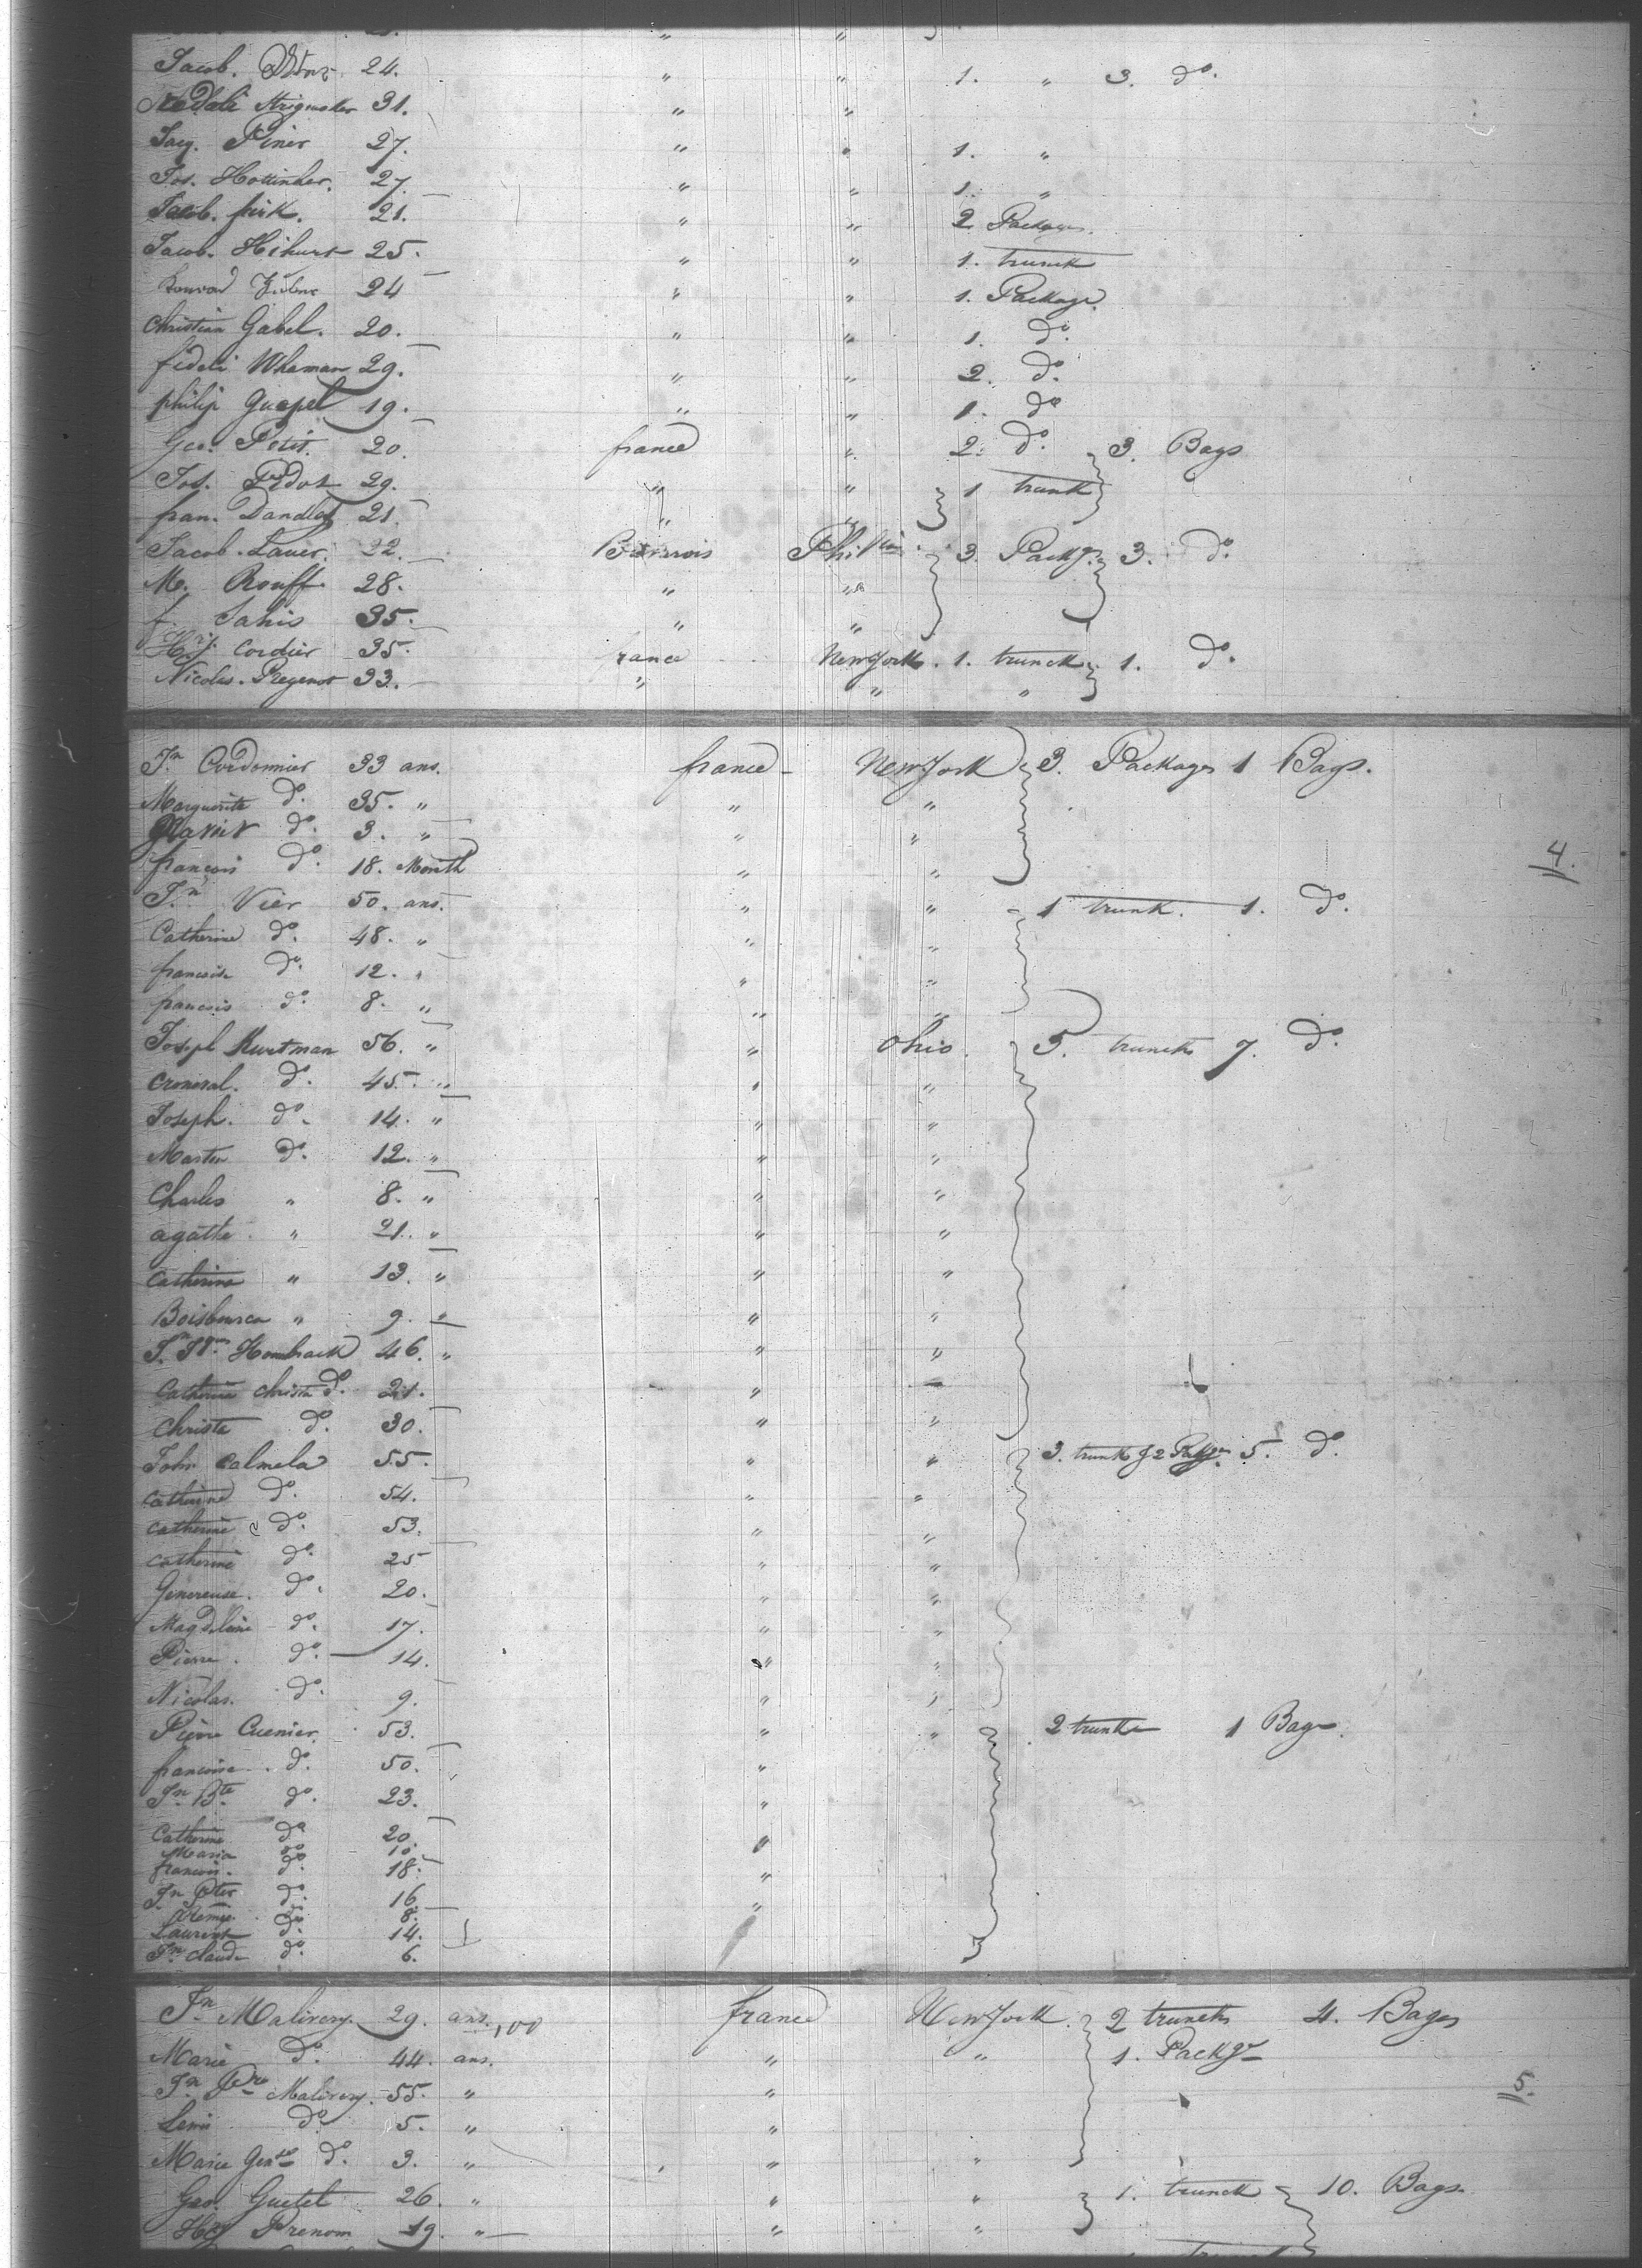 Jacob. 24. " " 1. " 3. do.
31. " "
Jacq. Pinér 27. " " 1. "
Jos. Hottinher. 27. " " 1. "
Jacob. fırk. 21. " " 2 Packages.
Jacob. Hihurt 25. " " 1. trunck
24 " " 1. Package.
Christian Gabel. 20. " " 1. do.
fideli Whaman 29. " " 2. do.
philip Guepel 19. " " 1. do
Geo. Petit. 20. france " 2. do. 3. Bags
Jos. Pidot 29. " " 1 trunk
fran. Dandlot 21. " "
Jacob. Lauer. 22. Phil 3. Packgs. 3. do.
M. Rouff 28. " "
f. Jahis 35. " "
Hry. Cordier 35. france New York. 1. trunck 1. do.
Nicolas. Pregenot 33. " " "
Jn Cordonnier 33 ans. france New York 3. Packages 1 Bags.
Marguerite do. 35. " " "
do. 3. " " "
françois do. 18. Month " "
4.
Jn. Vier 50. ans. " " 1 trunk. 1. do.
Catherine do. 48. " " "
francoise do. 12. " " "
francois do. 8. " " "
Joseph Kurtman 56. " " Ohio. 5. truncks 7. do.
Cronisal. do. 45. " " "
Joseph. do. 14. " " "
Martin do. 12. " " "
Charles " 8. " " "
agatte " 21. " " "
Catherine " 13. " " "
" 9. " " "
Jn. Jques Hombrack 46. " " "
Catherine Christa do. 21. "
Christa do. 30. " "
John Calmela 55. " " 3. trunk & 2 Packgs 5. do.
Catherine do. 54. " "
Catherine do. 53. " "
Catherine do. 25 " "
Genereuse. do. 20. " "
Magdeleine do. 17. " "
Pierre. do. 14. " "
Nicolas. do. 9. " "
Pierre Cuenier. 53. " " 2 trunks 1 Bags.
francoise. do. 50. "
Jn Bte. do. 23. "
Catherine do 20. "
Maria do 10.
francois. do. 18. "
Jn Pter do. 16. "
do 8.
Laurent do. 14.
Jn. claude do. 6.
Jn Malivery. 29. ans. france New York. 2 truncks 4. Bags
Marie do. 44. ans. " " 1. Packgs
Jn Pre Malivery. 55. " "
5.
Lewi do. 5. " "
Marie Gente do. 3. " " "
Geo. Guetet 26. " " " 1. trunck 10. Bags.
Hry Prenom 19. " " "